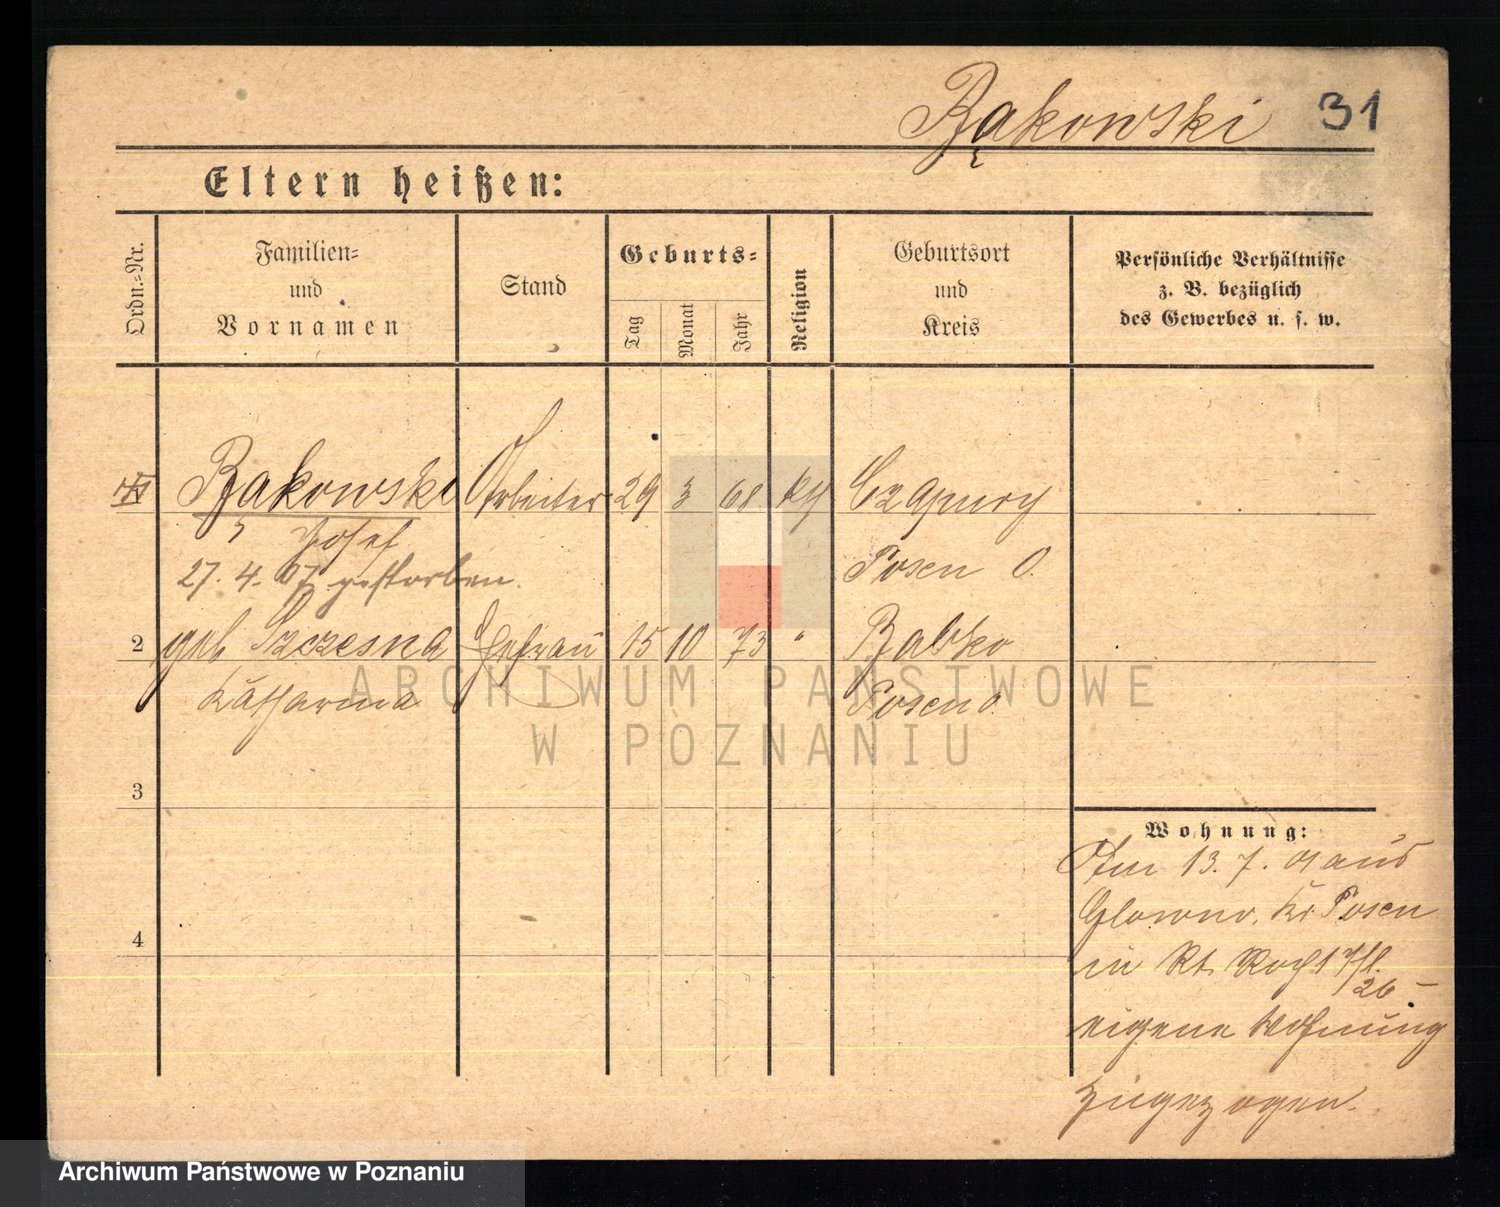 Bąkowski 31
Eltern heißen:
Ordn.-Nr.
Familien-
und
Vornamen
Stand
Geburts-
Tag
Monat
Jahr
Religion
Geburtsort
und
Kreis
Persönliche Verhältnisse
z. B. bezüglich
des Gewerbes u. s. w.
Bąkowski Arbeiter 29 3 68 kth Czapury
Josef Posen O.
27. 4. 07 gestorben.
2 geb Szczesna Ehefrau 15 10 73 " Babko
Katharina Posen O
3
4
Wohnung:
Am 13. 7. 01 aus
Glowno, Kr. Posen
in St. Roch
26 –
eigene Wohnung
zugezogen.
ARCHIWUM PAŃSTWOWE
W POZNANIU
Archiwum Państwowe w Poznaniu